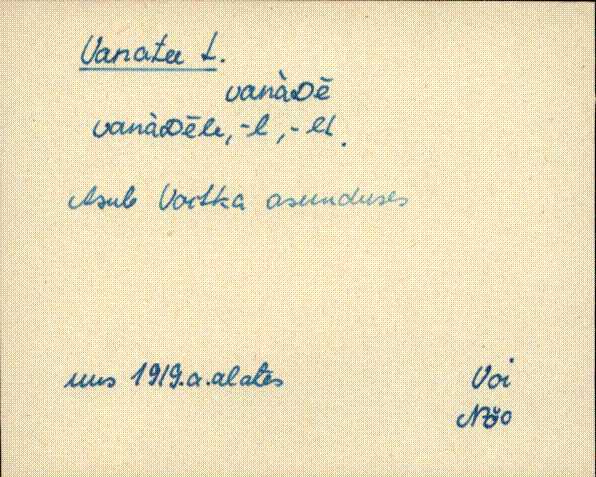 Vanatee t.
vanàDē
vanàDēle, -l, -lt.
Asub Voitka asunduses
uus 1919.a.alates
Voi
Nõo